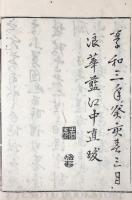 享和三年癸亥春三月
浪華藍江中直跋